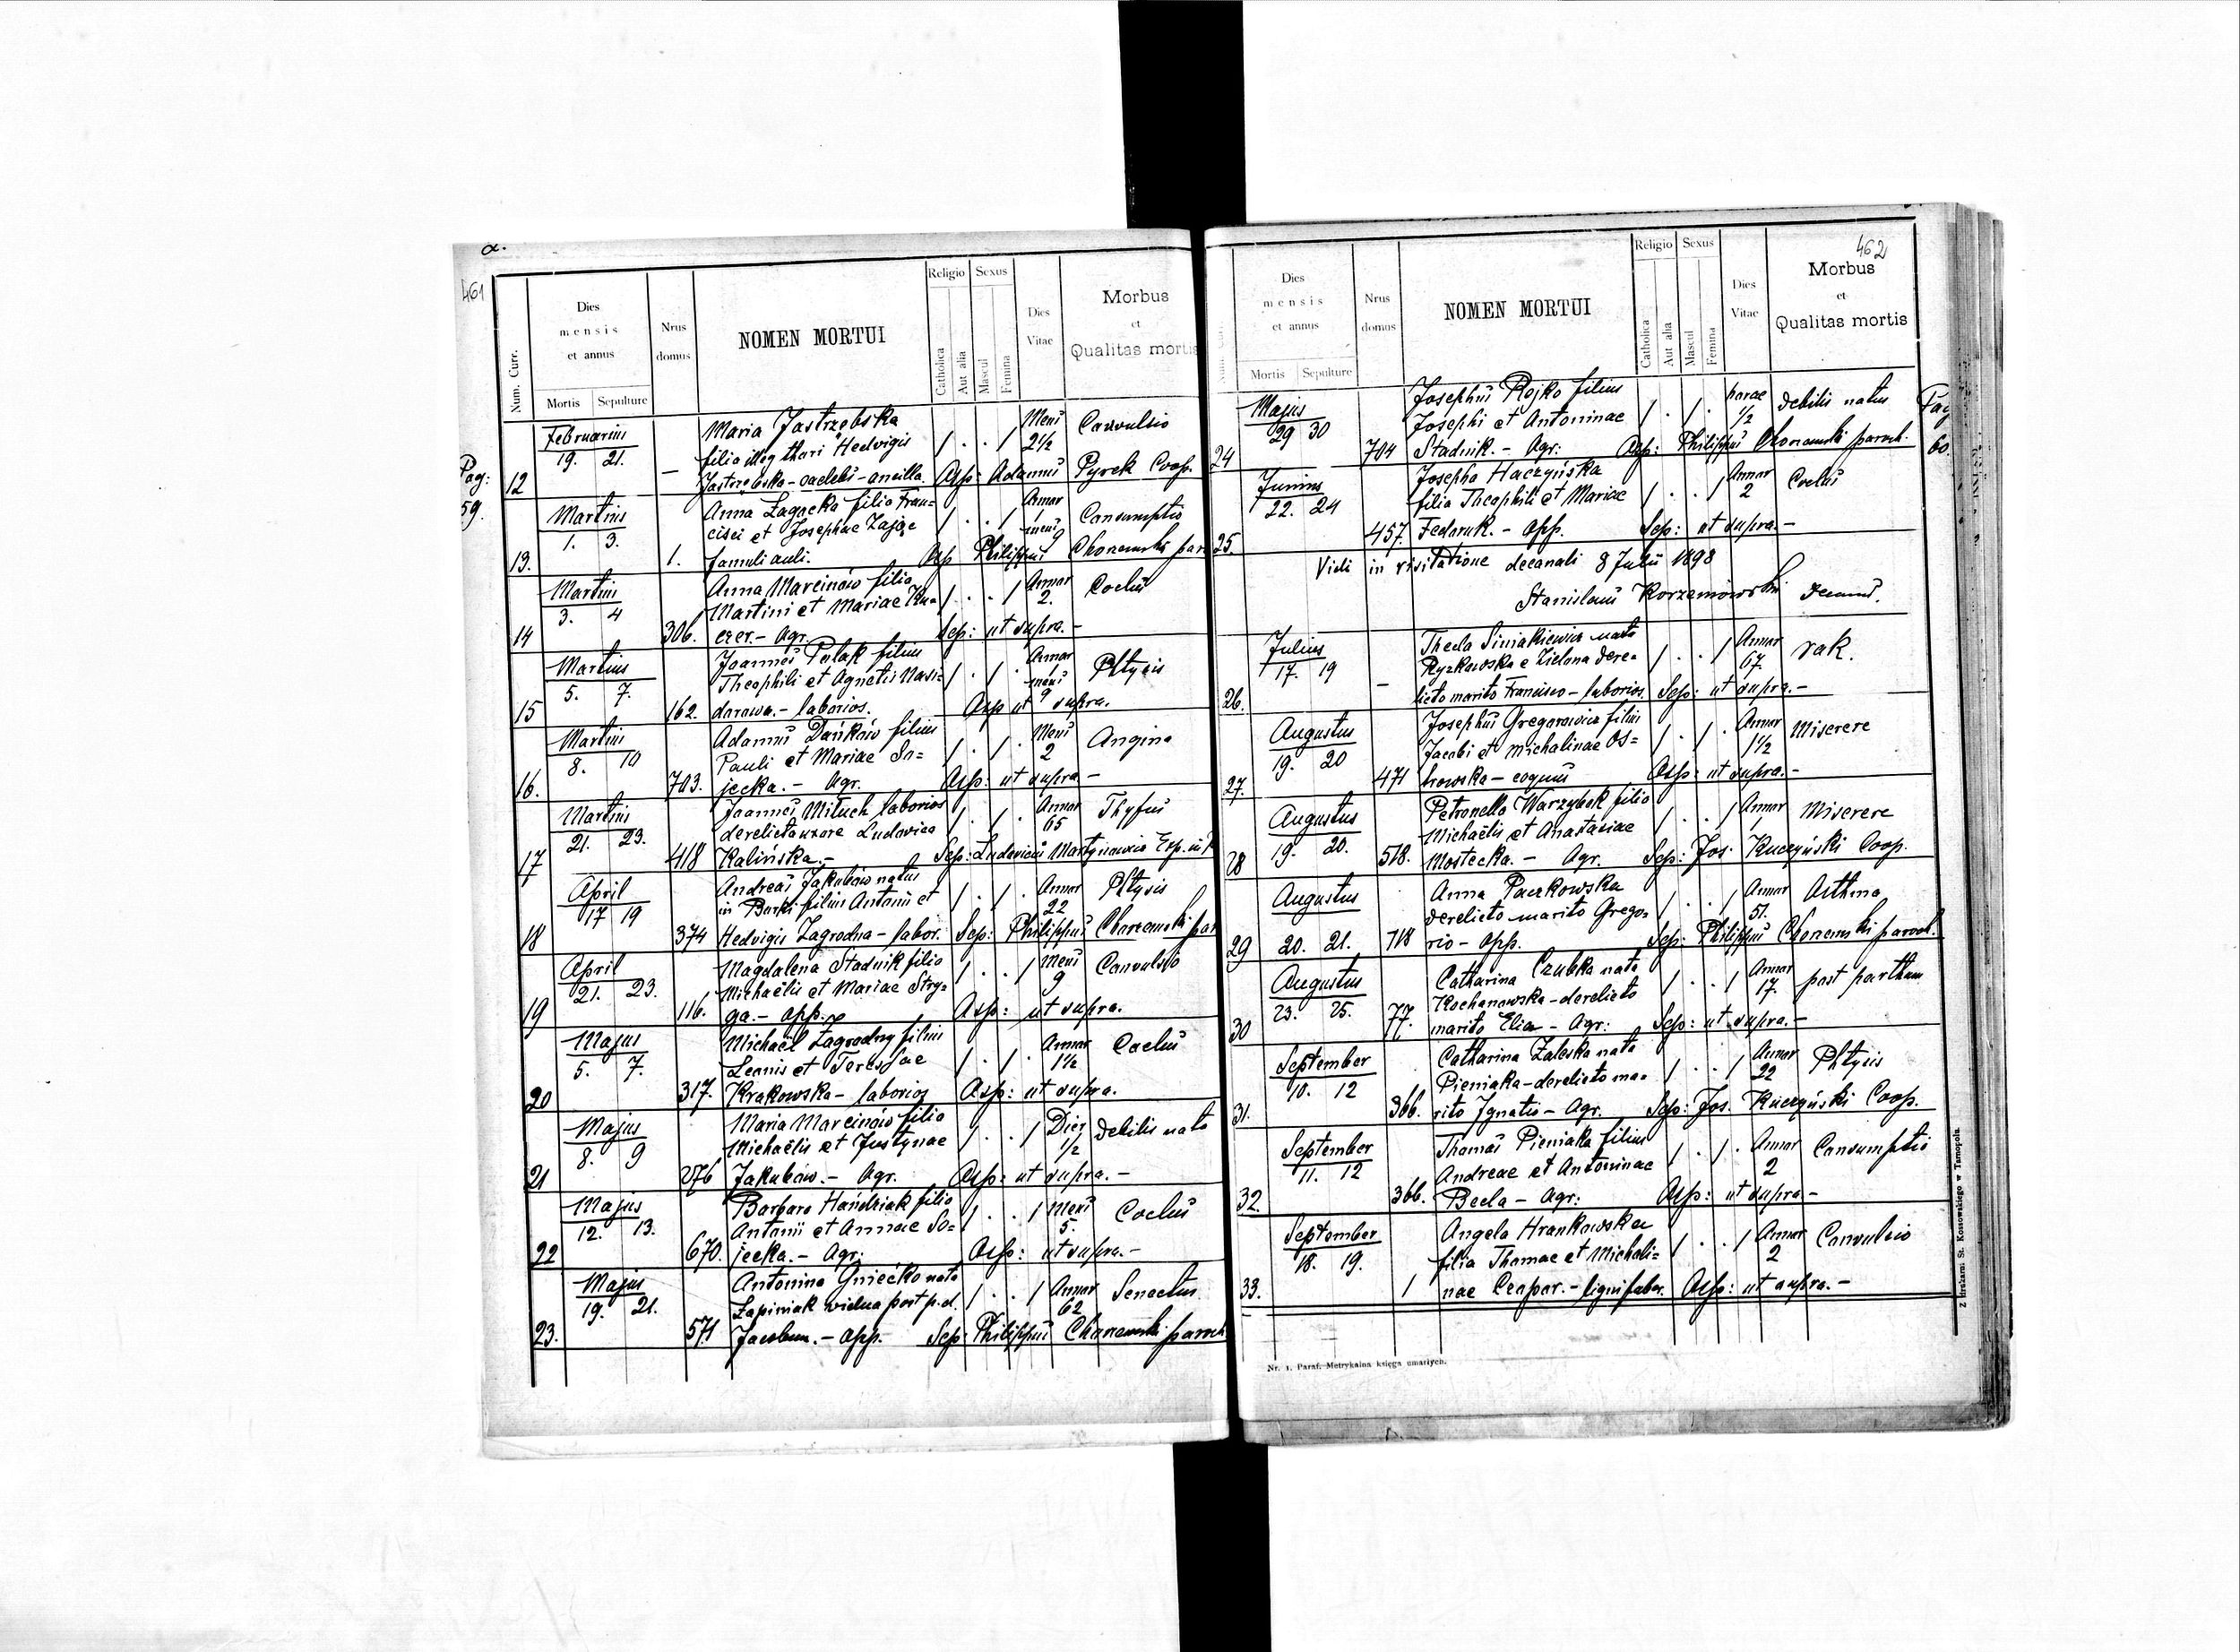 a.
461
Num. Curr.
Dies
mensis
et annus
Mortis Sepulture
Nrus
domus
NOMEN MORTUI
Religio
Catholica
Aut alia
Sexus
Mascul
Femina
Dies
Vitae
Morbus
et
Qualitas mortis
Pag:
59.
Februarius Maria Jastrzębska Mens Convulsio
19. 21. filia illeg thori Hedvigis / . . / 2½
12 — Jastrzębska - caelebs - ancilla. Asp: Adamus Pyrek Coop.
Martius Anna Zagacka filia Fran= Annor Consumptio
1. 3. cisci et Josephae Zając / . . / 1 mens 9
13. 1. famuli auli. Asp Philippus
Martius Anna Marcinów filia Annor Coclus
3. 4 Martini et Mariae Ku= / . . / 2.
14 306. czer. - Agr. Sep: ut supra. -
Martius Joannes Polak filius Annor Phtysis
5. 7. Theophili et Agnetis / . / . mens 9
15 162. - laborios. Asp ut supra.
Martius Adamus Dańków filius Mens Angina
8. 10 Pauli et Mariae So= / . / . 2
16. 703. jecka. - Agr. Asp: ut supra -
Martius Joannes Mituch laborios Annor Thyfus
21. 23. derelicta uxore Ludovica / . / . 65
17 418 Kalińska. - Sep: Ludovicus
April Andreas Jakubów natus Annor Phtysis
17 19 in Burki filius Antonii et / . / . 22
18 374 Hedvigis Zagrodna - labor. Sep: Philippus
April Magdalena Stadnik filia Mens Convulsio
21. 23. Michaëlis et Mariae Stry= / . . / 9
19 116. ga. - opp. Asp: ut supra.
Majus Michaël Zagrodny filius Annor Coclus
5. 7. Leonis et Teressae / . / . 1½
20 317. Krakowska - laborios Asp: ut supra.
Majus Maria Marcinów filia Dies debilis nata
8. 9 Michaëlis et Justynae / . . / ½
21 276 Jakubów. - Agr. Asp: ut supra. -
Majus Barbara Handziak filia Mens Coclus
12. 13. Antonii et Annae So= / . . / 5.
22 670. jecka. - Agr: Asp: ut supra. -
Majus Antonina Gniećko nata Annor Senectus
19. 21. Łapiniak vidua post p.d. / . . / 62
23. 571 Jacobum. - opp. Sep Philippus
462
Dies
mensis
et annus
Mortis Sepulture
Nrus
domus
NOMEN MORTUI
Religio
Catholica
Aut alia
Sexus
Mascul
Femina
Dies
Vitae
Morbus
et
Qualitas mortis
Pag
60.
Majus Josephus Rojko filius horae debilis natus
29 30 Josephi et Antoninae / . / . ½
24 704 Stadnik. - Agr: Asp: Philippus paroch.
Junius Josepha Haczyńska Annor Coclus
22. 24 filia Theophili et Mariae / . . / 2
25. 457. Fedoruk. - opp. Sep: ut supra. -
Vidi in visitatione decanali 8 Julii 1898
Stanislaus Korzeniowski
Julius Thecla Siniakiewicz nata Annor rak.
17. 19 Ryzkowska e Zielona dere= / . . / 67.
26. — licto marito Francisco - laborios. Sep: ut supra. -
Augustus Josephus Gregorowicz filius Annor Miserere
19. 20 Jacobi et Michalinae Os= / . / . 1½
27. 471 trowska - coquus Asp: ut supra. -
Augustus Petronella Warzybok filia Annor Miserere
19. 20. Michaëlis et Anastasiae / . . / 1
28 518. Mostecka. - Agr. Sep: Jos: Kuczyński Coop.
Augustus Anna Paczkowska Annor Asthma
derelicto marito Grego= / . . / 51.
29 20. 21. 718 rio - opp. Sep: Philippus paroch.
Augustus Catharina Czubka nata Annor post parthum
23. 25. Kochanowska - derelicto / . . / 17.
30 77. marito Elia - Agr: Sep: ut supra. -
September Catharina Zaleska nata Annor Phtysis
10. 12 Pieniaka - derelicto ma= / . . / 22
31. 366. rito Ignatio - Agr. Sep: Jos. Kuczyński Coop.
September Thomas Pieniaka filius Annor Consumptio
11. 12 Andreae et Antoninae / . / . 2
32. 366. Becla - Agr: Asp: ut supra -
September Angela Hrankowska Annor Convulsio
18. 19. filia Thomae et Michali= / . . / 2
33. 1 nae Ceapar. - lignifaber. Asp: ut supra. -
Nr. 1. Paraf. Metrykalna księga umarłych.
Z drukarni St. Kossowskiego w Tarnopolu.